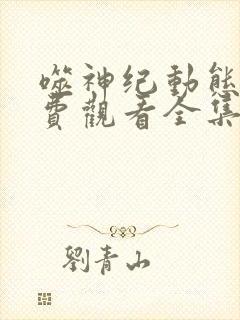 噬神纪動態
費觀看全集
劉青山